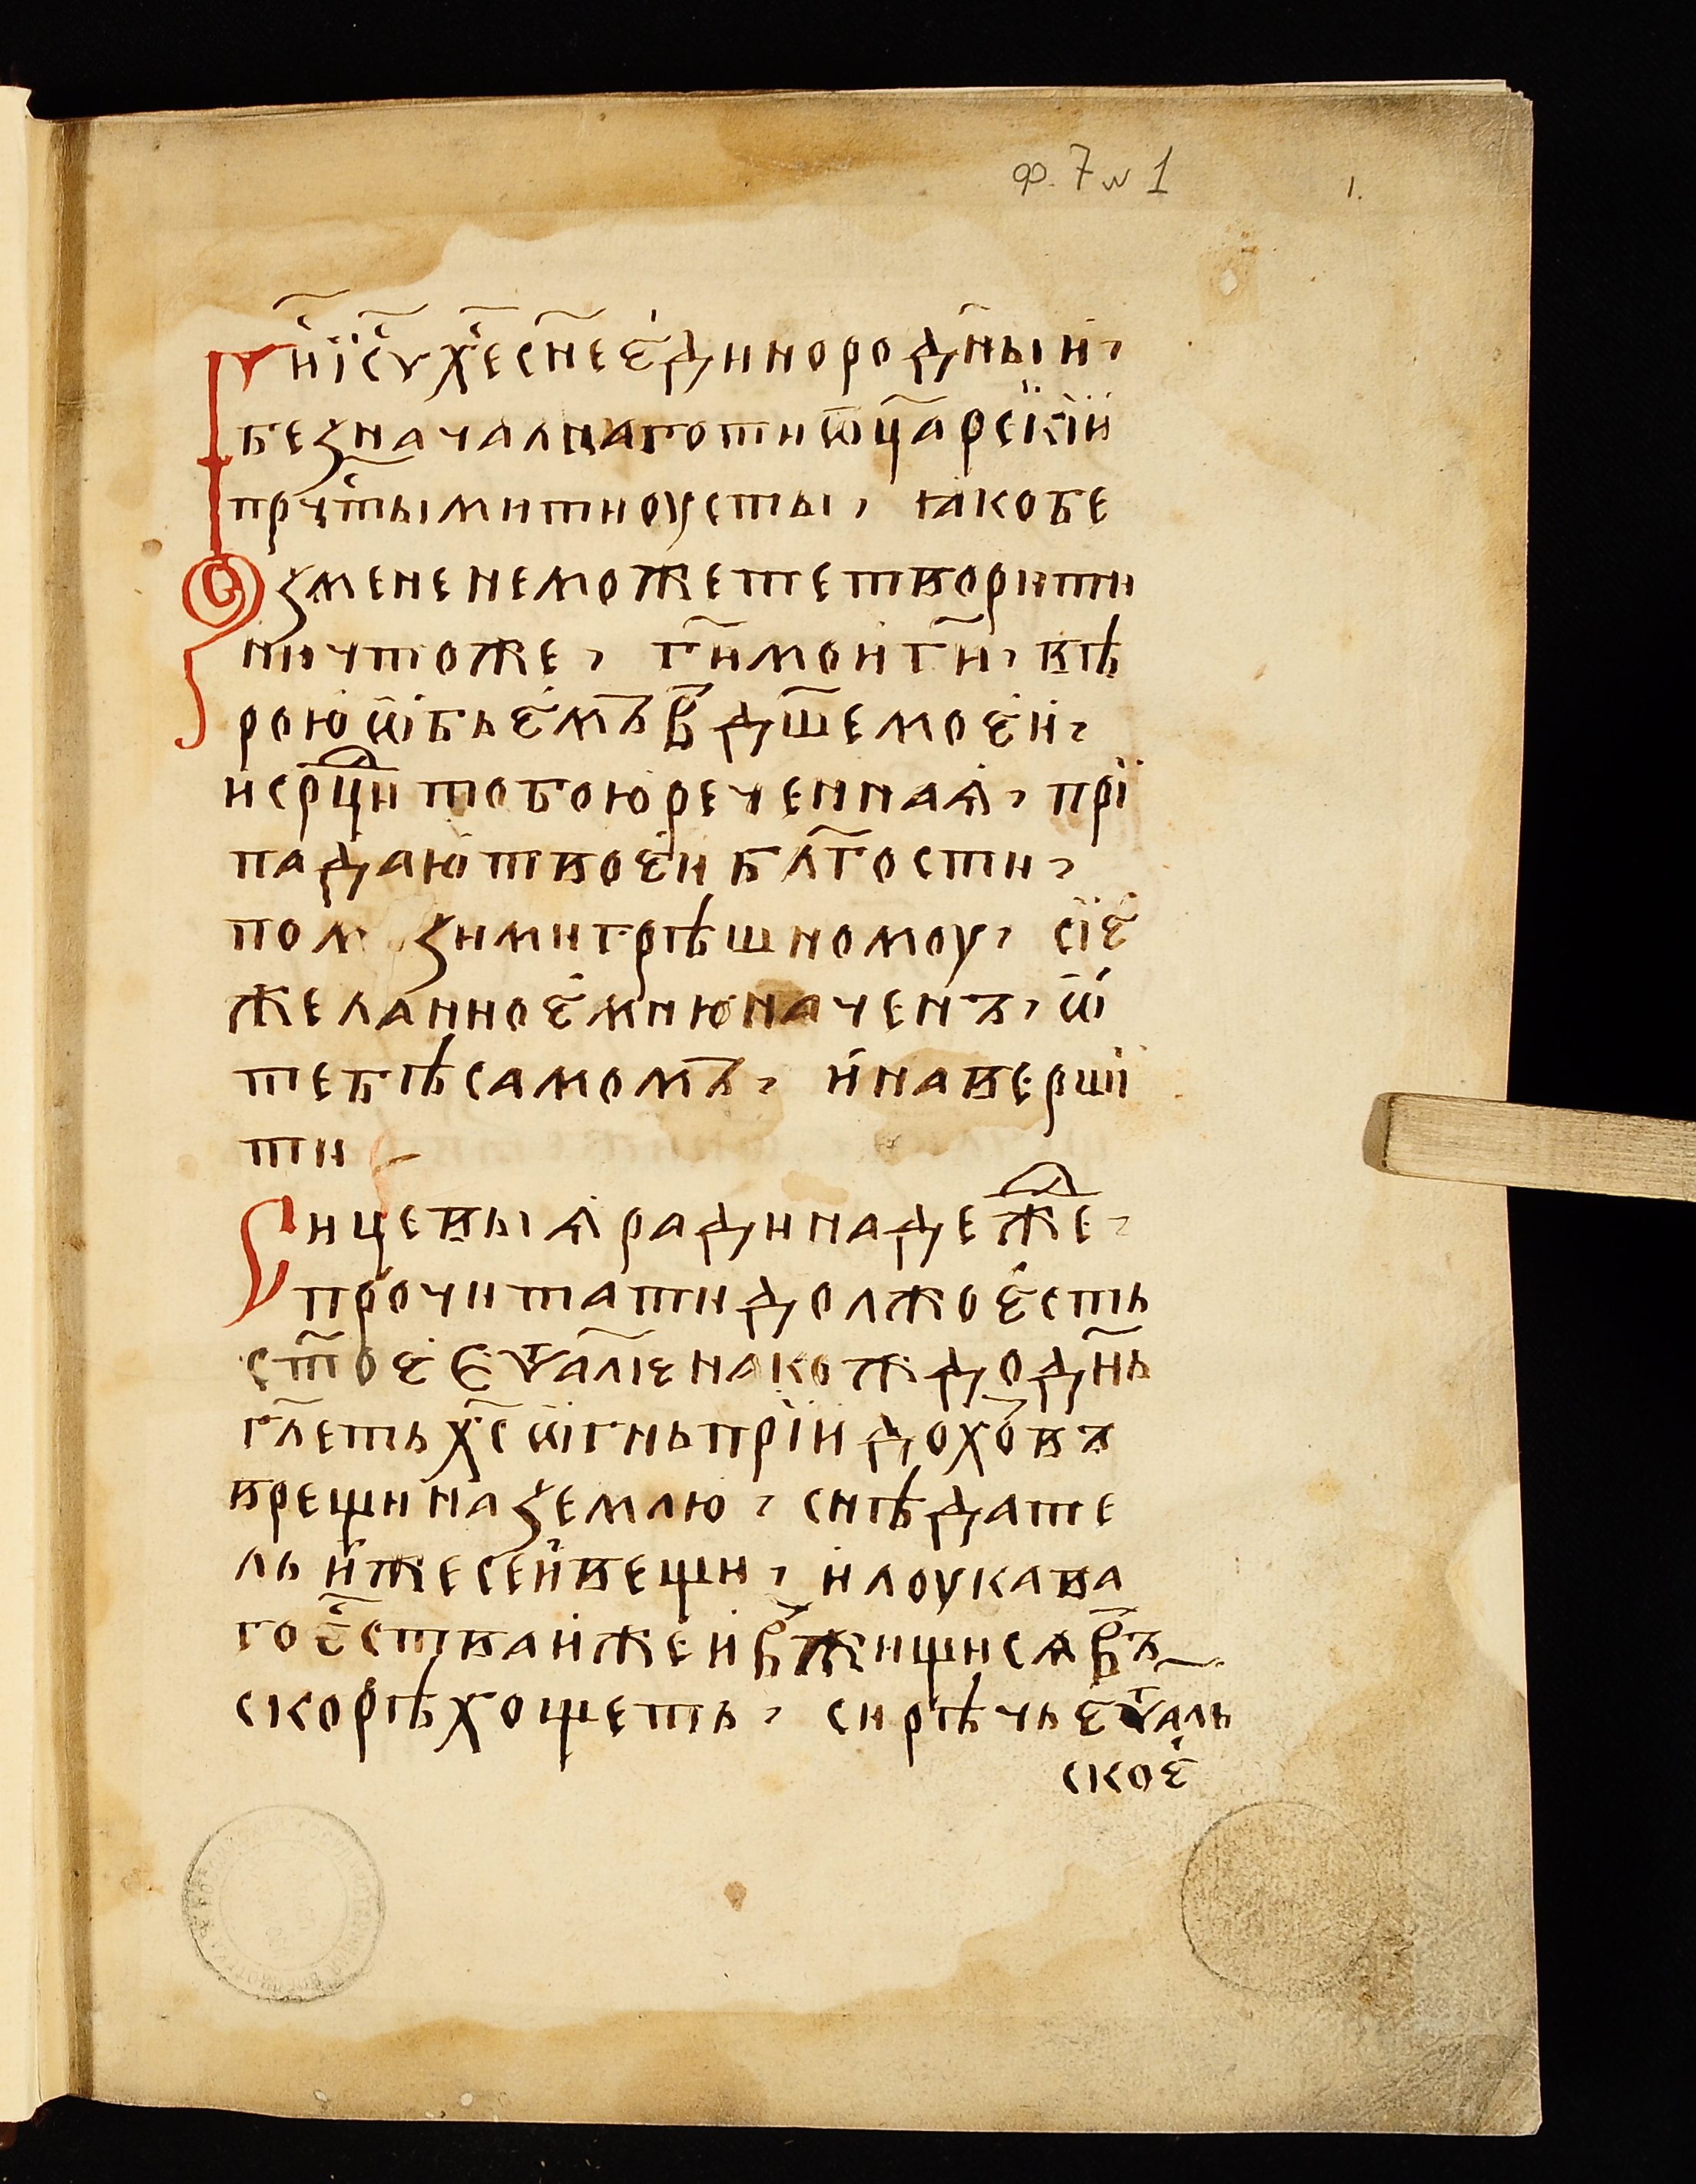 ф. 7 № 1
1.
Гн҃и і҆су х҃е сн҃е є҆динородн҃ыи҆,
безначалнаго ти ѿц҃а рс҃кїи
прч҃тыми ти оусты, ꙗко бе
з мене не можете творити
ничтоже, гн҃и мои гн҃и, вѣ
рою ѡ҆бьє҆мъ в дш҃е моєи҆,
и срⷣци тобою реченнаѧ҆, прї
падаю твоєи҆ бл҃гости,
пом зи ми грѣшномоу, сїє҆
желанноє҆ мню наченъ, ѡ҆
тебѣ самомъ, и҆ наверши
ти
Сицевыѧ ради надеⷤже,
прочитати должо є҆сть
ст҃оє Єѵⷢ҇аліє на кождо дн҃ь
гл҃еть хс҃ ѡ҆гнь прїидохов̾ъ
врещи на землю, снѣдате
ль и҆же сеи҆ вещи, и҆ лоукава
го єс҃тва и҆же и҆ в̾жищисѧ в̾ъ
скорѣ хощеть, си рѣчь є҆ѵⷢ҇аль
скоє҆